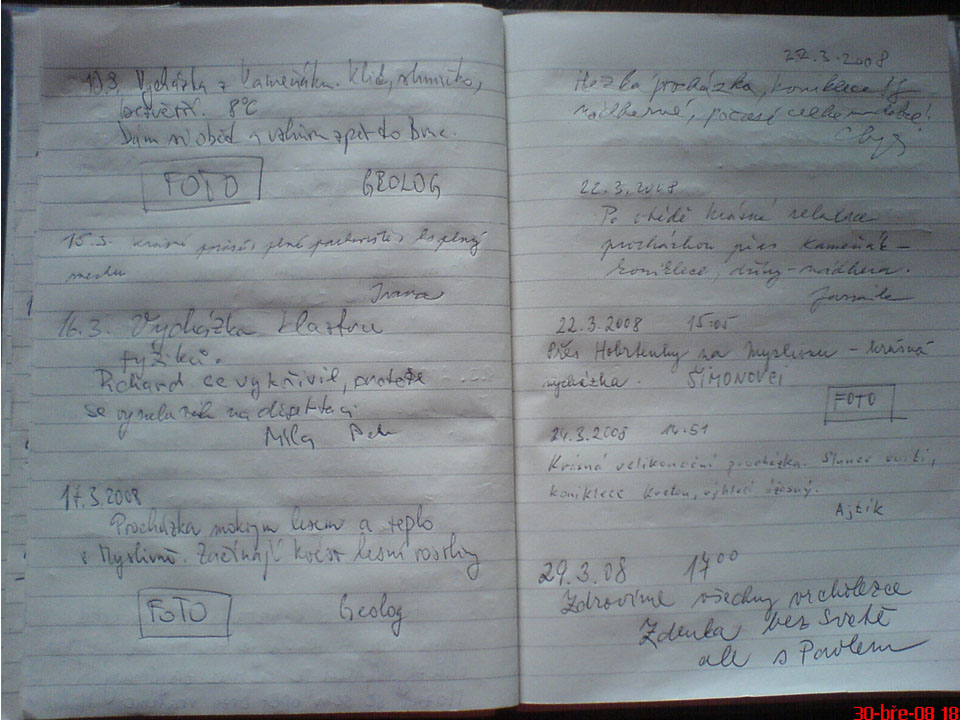 Vycházka z Kameňáku. Klid, sluníčko,
bezvětří. 8°C
Dám si oběd a vzhůru zpět do Brna.
FOTO GEOLOG
15.3. krásné plné
Ivana
16.3. Vycházka klastru
fyziků.
Richard se vykřivil, protože
se vymlouvá na disertaci
Míla Petr
17.3.2008
Procházka mokrým lesem a teplo
v Myslivně. Začínají kvést lesní rostliny
FOTO Geolog
22.3.2008
Hezká procházka, koniklece již
nádherné, počasí
22.3.2008
Po obědě krásná relaxace
procházkou přes Kameňák -
koniklece, - nádhera.
Jarmila
22.3.2008 15:05
Přes Hobrtenky na Myslivnu - krásná
vycházka. ŠIMONOVCI
FOTO
24.3.2008 14:51
Krásná velikonoční procházka. Slunce svítí,
koniklece kvetou, výhled úžasný.
Ajtik
29.3.08 17⁰⁰
Zdravíme všechny vrcholezce
Zdenka bez Světě
ale s Pavlem
30-bře-08 18